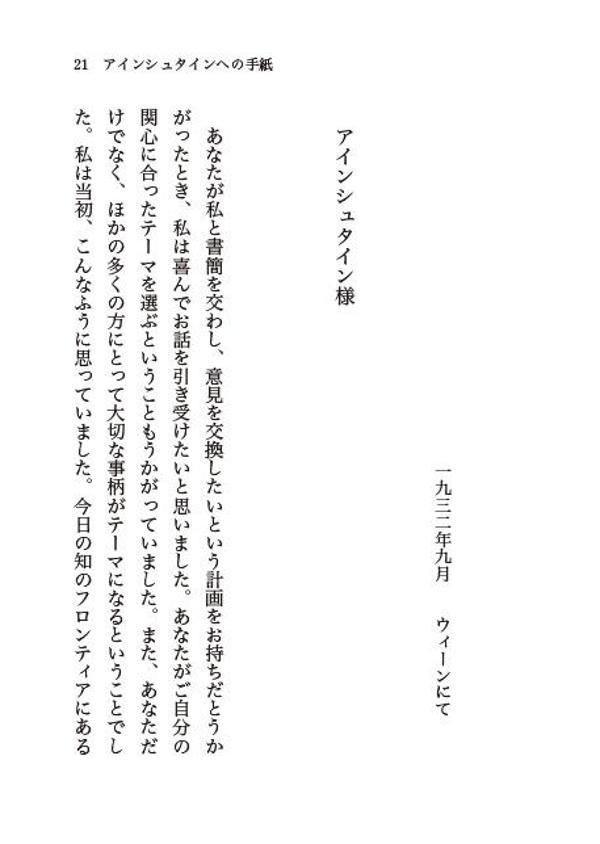 21 アインシュタインへの手紙
一九三二年九月 ウィーンにて
アインシュタイン様
あなたが私と書簡を交わし、意見を交換したいという計画をお持ちだとうか
がったとき、私は喜んでお話を引き受けたいと思いました。あなたがご自分の
関心に合ったテーマを選ぶということもうかがっていました。また、あなただ
けでなく、ほかの多くの方にとって大切な事柄がテーマになるということでし
た。私は当初、こんなふうに思っていました。今日の知のフロンティアにある